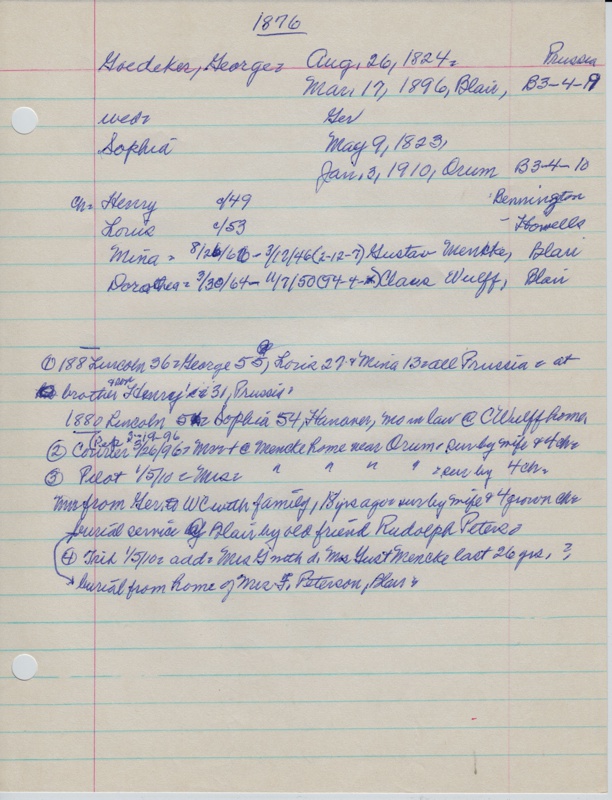 1876
Goedeker, George= Aug, 26, 1824= Prussia
Mar, 17, 1896, Blair, B3-4-9
wed= Ger
Sophia May 9, 1823,
Jan, 3, 1910, Orum B3-4-10
ch= Henry c/49 Bennington
Louis c/53 - Howells
Mina = 8/26/66 - 3/12/46 (2-12-7) Gustav Mencke, Blair
Dorothea = 3/30/64 - 11/7/50 Claus Wulff, Blair
① 188 Lincoln 36 = George 55, Louis 27 & Mina 13 = all Prussia = at
brother Henry 31, Prussia=
1880 Lincoln Sophia 54, Hanover, mo in law @ C Wulff home=
② Courier 3/26/96 = Mr + @ Mencke home near Orum = sur by wife & 4 ch=
Pilot 3-19-96
③ Pilot 1/5/10 = Mrs = " " " " = sur by 4 ch=
from Ger to WC with family, 18 yrs ago = sur by wife & 4 grown ch=
burial service @ Blair by old friend Rudolph Peters=
④ Trib 1/5/10 = add = Mrs G with d, Mrs Gust Mencke last 26 yrs, ?
burial from home of Mrs F, Peterson, Blair=